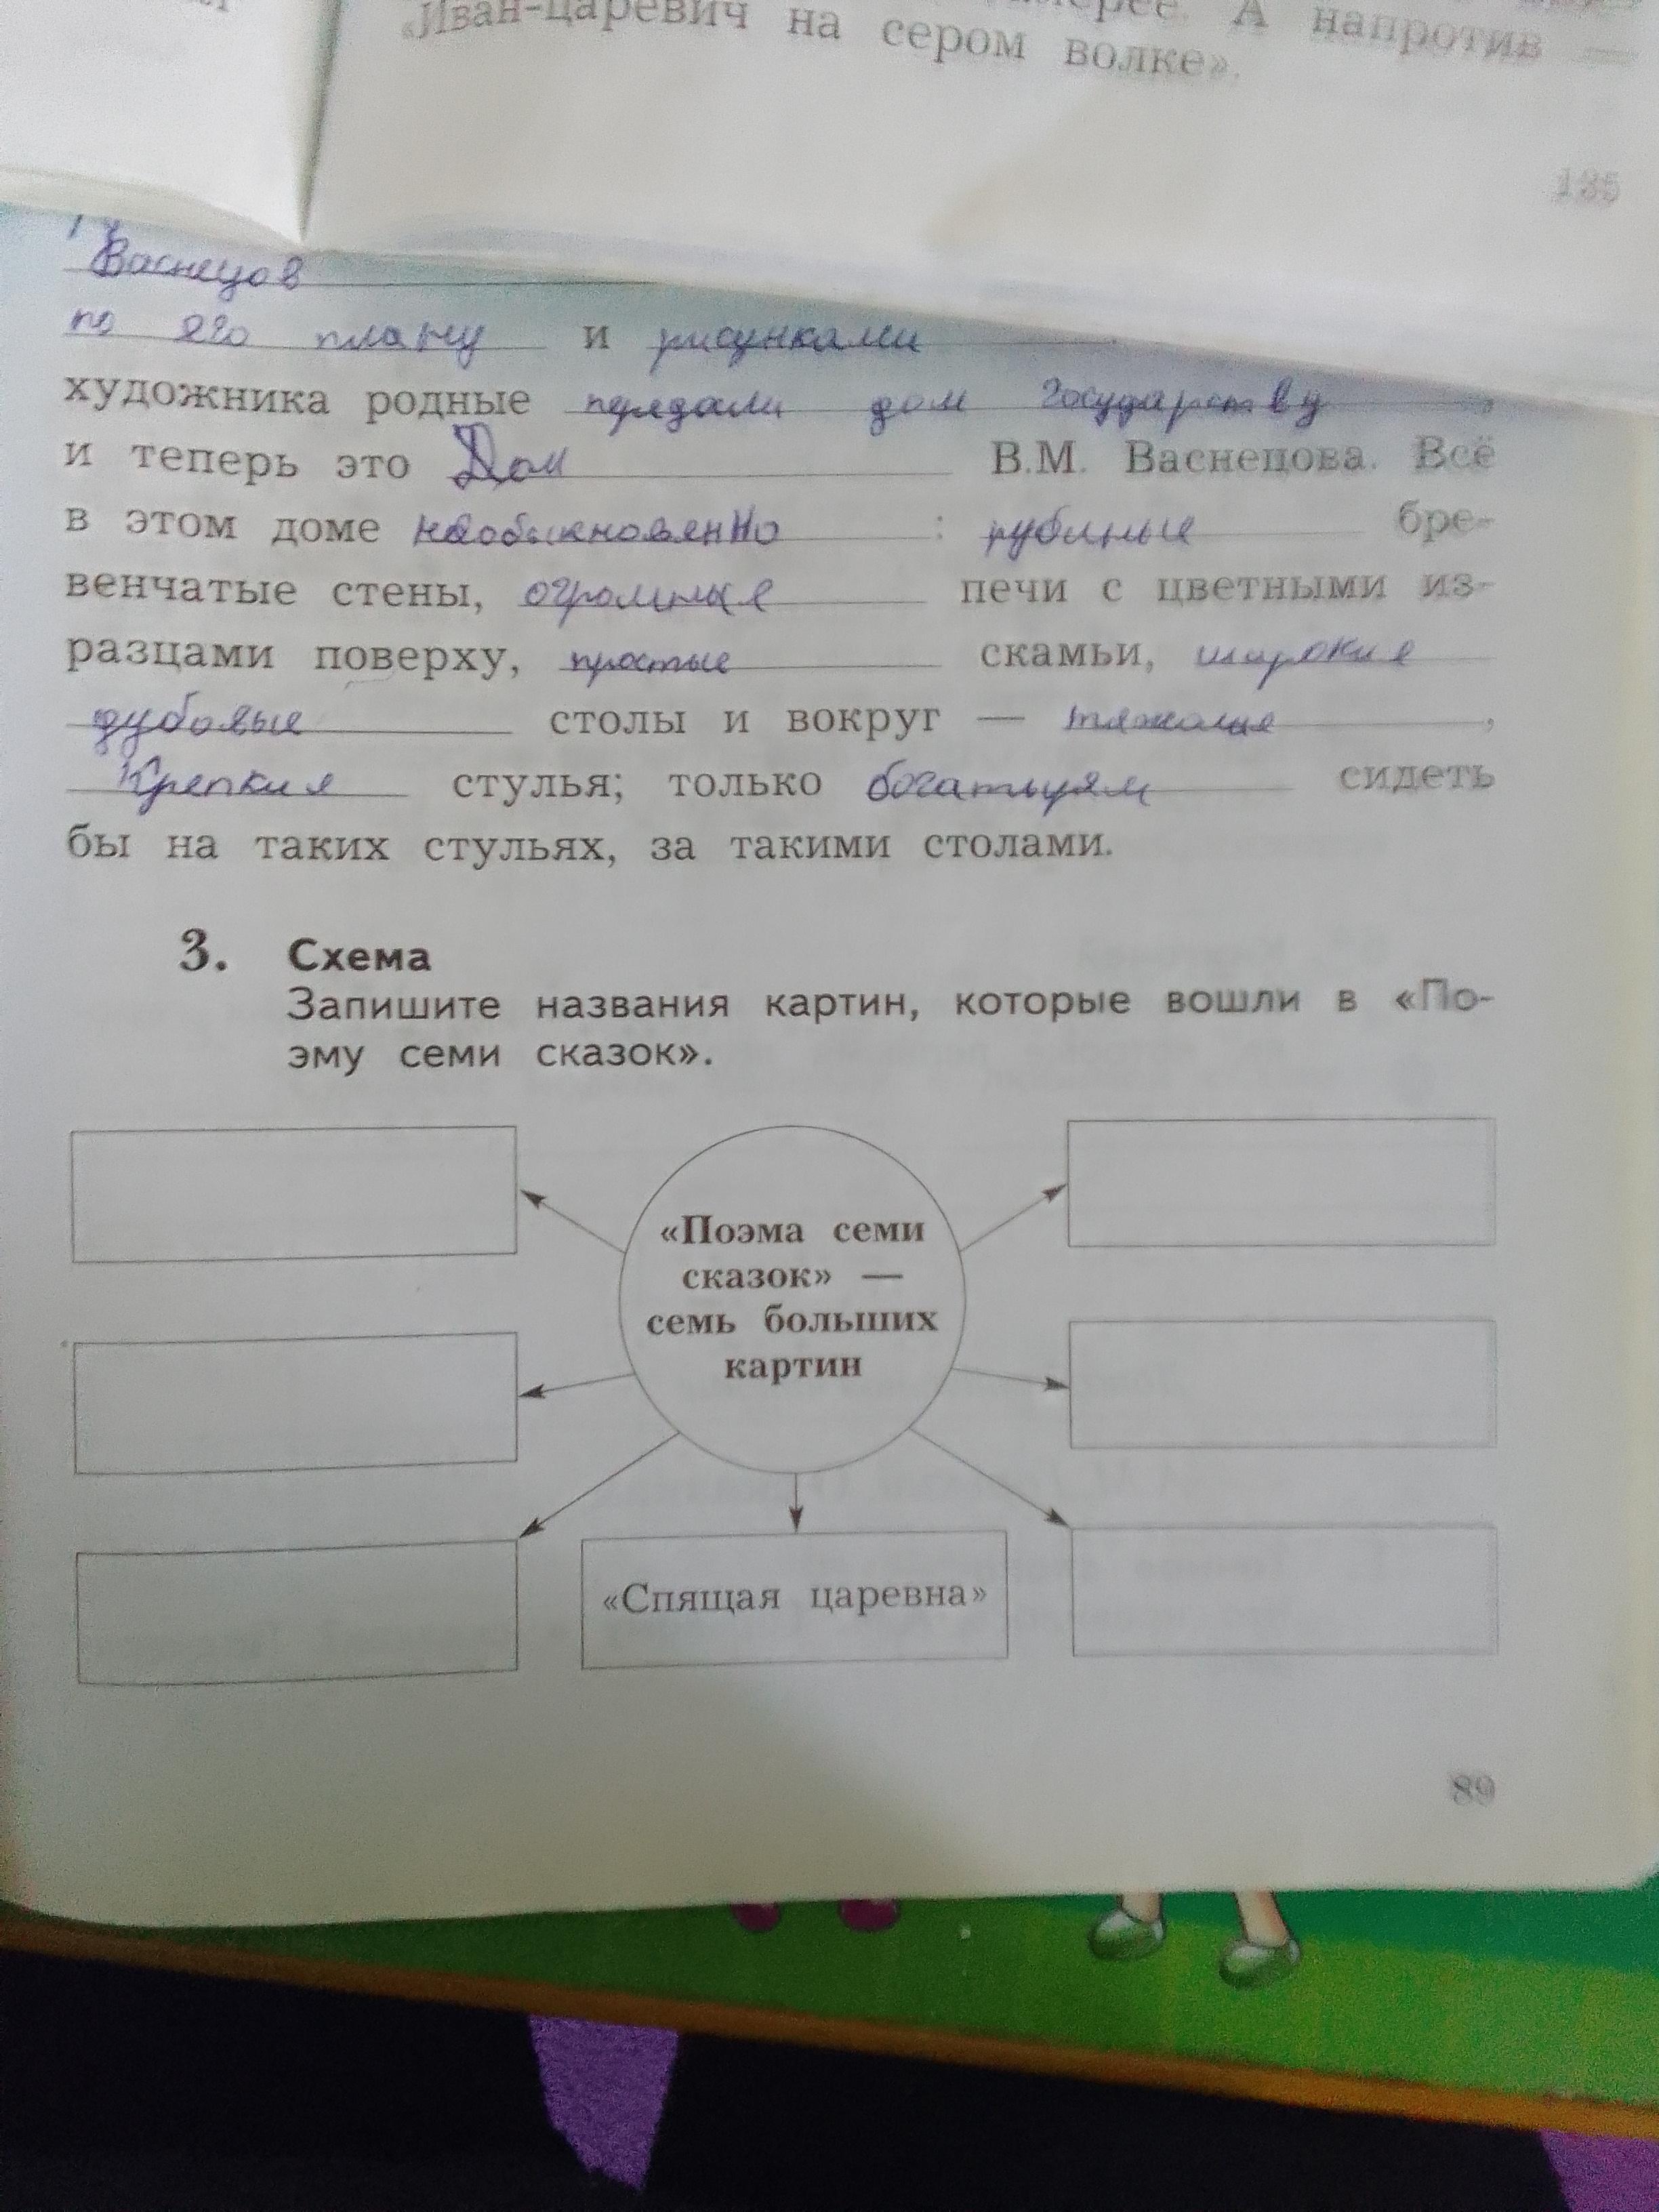 А напротив —
«Иван-царевич на сером волке».
135
Васнецов
по его плану и рисунками
художника родные передали дом государству,
и теперь это Дом В.М. Васнецова. Всё
в этом доме необыкновенно: рубленые бре-
венчатые стены, огромные печи с цветными из-
разцами поверху, простые скамьи, широкие
дубовые столы и вокруг — тяжолые,
Крепкие стулья; только богатырям сидеть
бы на таких стульях, за такими столами.
3. Схема
Запишите названия картин, которые вошли в «По-
эму семи сказок».
«Поэма семи
сказок» —
семь больших
картин
«Спящая царевна»
89